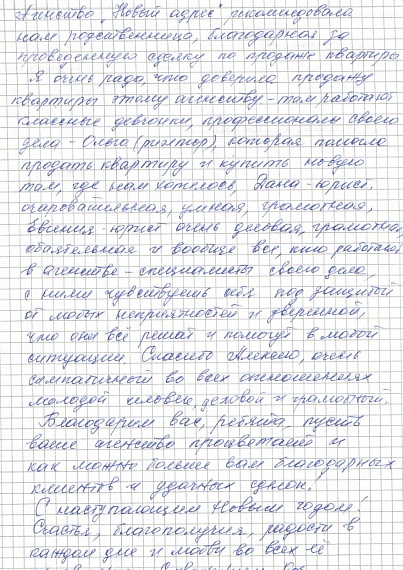 Агинство "Новый адрес" рекомендовала
нам родственница, благодарная за
проведенную сделку по продаже квартиры
Я очень рада, что доверила продажу
квартиры этому агинству - там работают
классные девчонки, профессионалы своего
дела - Ольга (риэлтор), которая помогла
продать квартиру и купить новую
там, где нам хотелось, Дана - юрист,
очаровательная, умная, грамотная,
Евгения - юрист очень деловая, грамотная,
обаятельная и вообще все, кто работает
в агенстве - специалисты своего дела,
с ними чувствуешь себя под защитой
от любых неприятностей и уверенной,
что они всё решат и помогут в любой
ситуации. Спасибо Алексею, очень
симпатичный во всех отношениях
молодой человек, деловой и грамотный.
Благодарим вас, ребята, пусть
ваше агенство процветает и
как можно больше вам благодарных
клиентов и удачных сделок!
С наступающим Новым годом!
Счастья, благополучия, радости в
каждом дне и любви во всех её